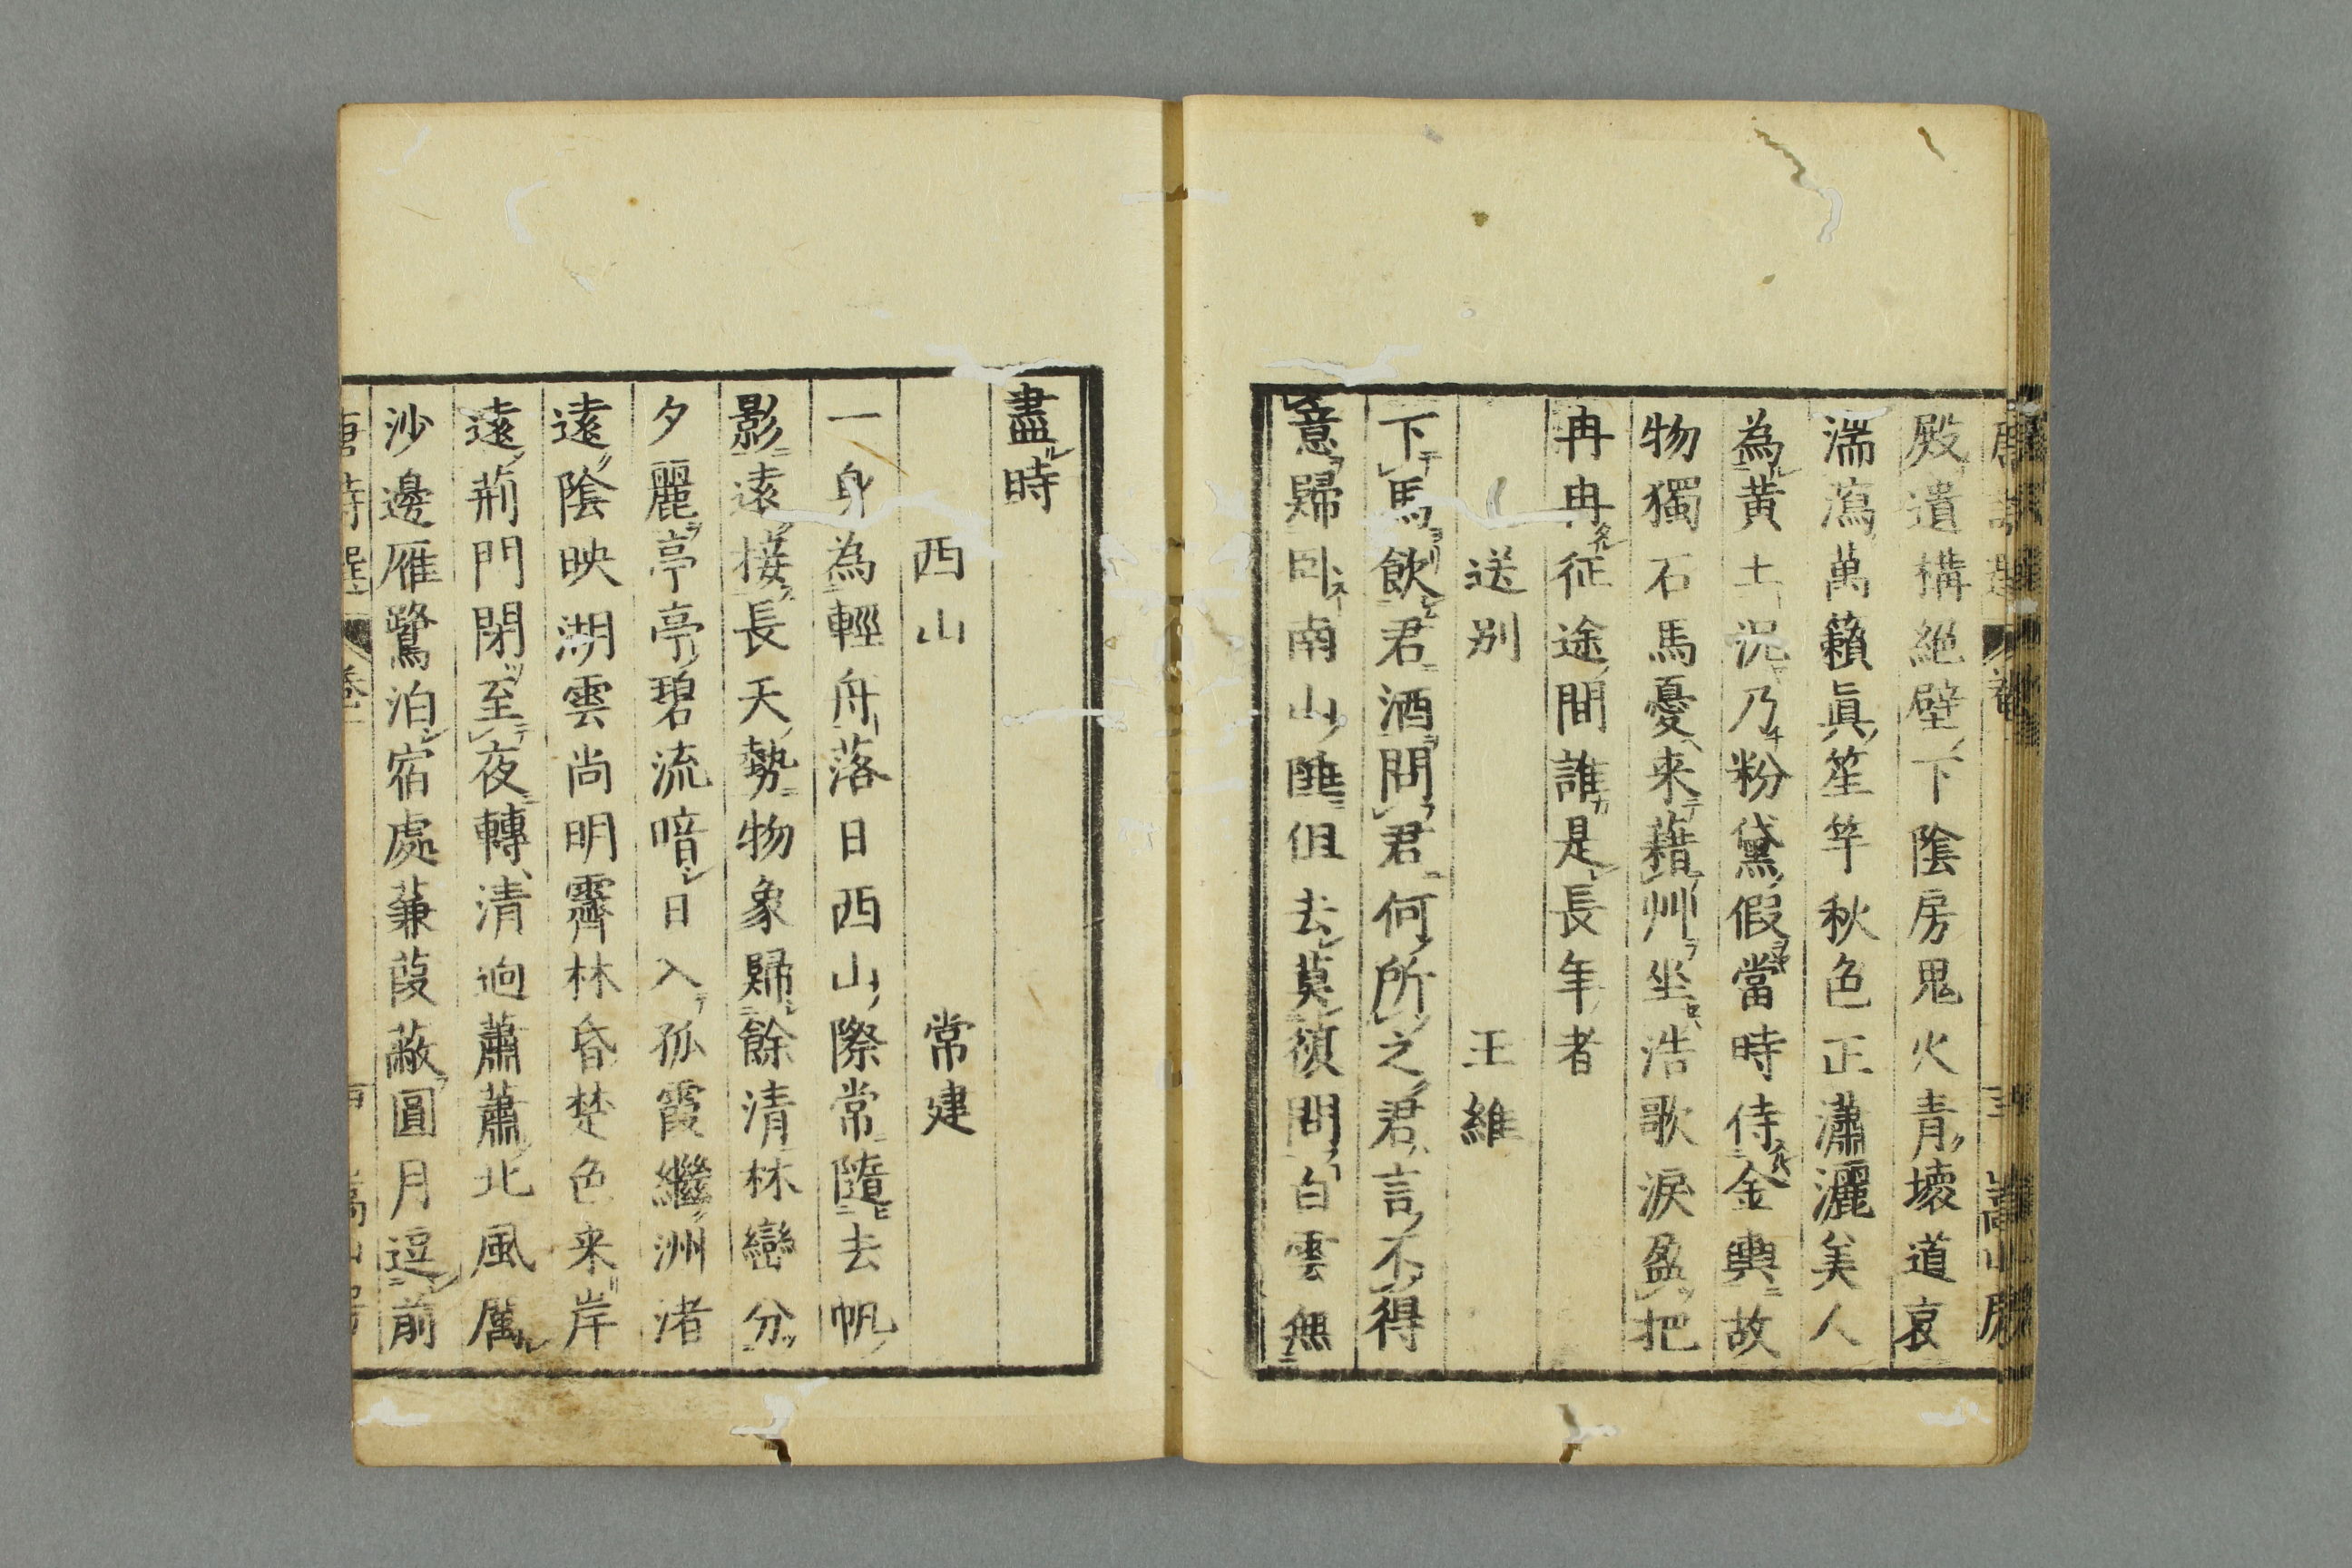 殿遺構絕壁下陰房鬼火青壞道哀
湍瀉萬籟眞笙竽秋色正瀟灑美人
為黄土況乃粉黛假當時侍金輿故
物獨石馬憂来藉艸坐浩歌淚盈把
冉冉征途間誰是長年者
送別 王維
下馬飲君酒問君何所之君言不得
意歸卧南山陲但去莫復問白雲無
盡時
西山 常建
一身為輕舟落日西山際常隨去帆
影遠接長天勢物象歸餘清林巒分
夕麗亭亭碧流暗日入孤霞繼洲渚
遠陰映湖雲尚明霽林昏楚色来岸
遠荊門閉至夜轉清逈蕭蕭北風厲
沙邊雁鷺泊宿處蒹葭蔽圓月逗前
唐詩選 卷一